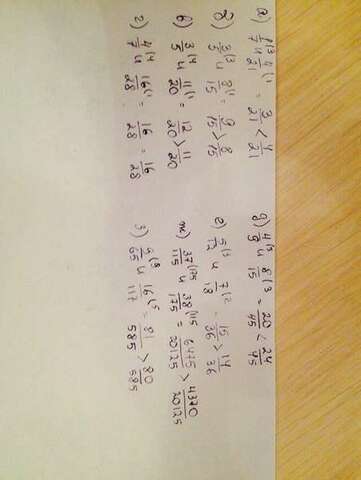 а) 1/7 ⁽³ и 4/21 ⁽¹ = 3/21 < 4/21
б) 3/5 ⁽³ и 8/15 ⁽¹ = 9/15 > 8/15
в) 3/5 ⁽⁴ и 11/20 ⁽¹ = 12/20 > 11/20
г) 4/7 ⁽⁴ и 16/28 ⁽¹ = 16/28 = 16/28
д) 4/9 и 8/15 ⁽³ = 20/45 < 24/45
е) 5/12 ⁽³ и 7/18 ⁽² = 15/36 > 14/36
ж) 37/115 ⁽¹⁷⁵ и 38/175 ⁽¹¹⁵ = 6475/20125 > 4370/20125
з) 9/65 ⁽⁹ и 16/117 ⁽⁵ = 81/585 > 80/585